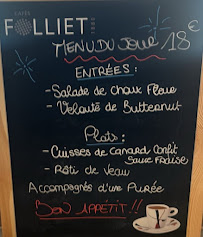 CAFÉS
FOLLIET
MENU DU JOUR 18€
ENTRÉES :
- Salade de choux Fleur
- Velouté de Butternut
Plats :
- Cuisses de canard Confit
Sauce Fraise
- Rôti de Veau
Accompagnés d'une Purée
BON APPÉTIT !!